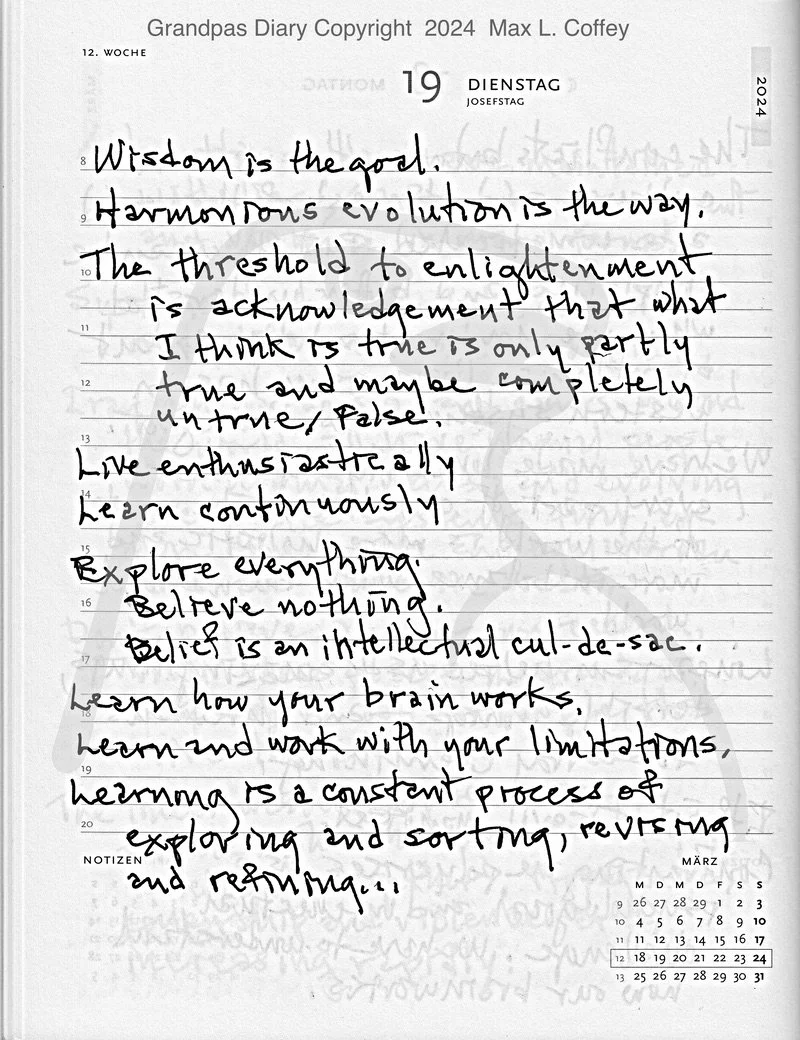 Grandpas Diary Copyright 2024 Max L. Coffey
12. WOCHE
19 DIENSTAG
JOSEFSTAG
2024
8 Wisdom is the goal.
9 Harmonious evolution is the way.
10 The threshold to enlightenment
is acknowledgement that what
11 I think is true is only partly
12 true and maybe completely
untrue/False.
13
Live enthusiastically
14 Learn continuously
15 Explore everything.
16 Believe nothing.
17 Belief is an intellectual cul-de-sac.
18 Learn how your brain works,
Learn and work with your limitations,
19 Learning is a constant process of
20 exploring and sorting, revising
NOTIZEN
and refining...
MÄRZ
M D M D F S S
9 26 27 28 29 1 2 3
10 4 5 6 7 8 9 10
11 11 12 13 14 15 16 17
12 18 19 20 21 22 23 24
13 25 26 27 28 29 30 31